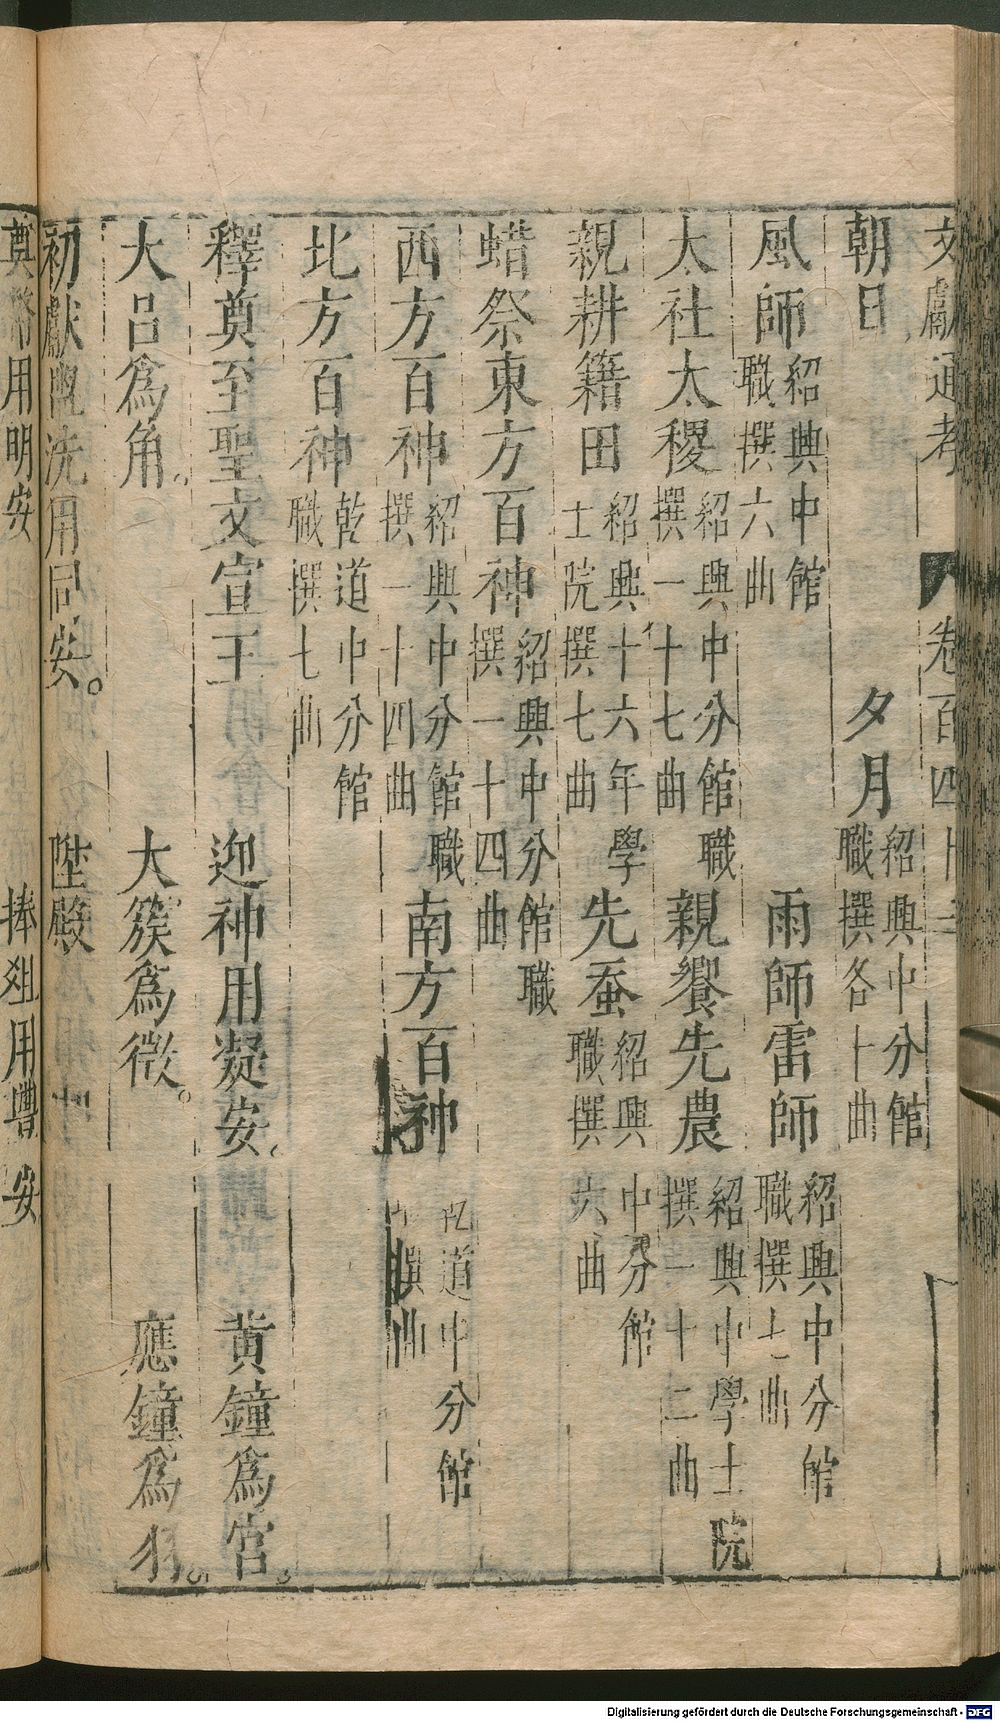 文獻通考　卷百四十三
朝日　夕月紹興中分館職撰各十曲
風師紹興中館職撰六曲　雨師雷師紹興中分館職撰七曲
太社太稷紹興中分館職撰一十七曲　親饗先農紹興中學士院撰一十二曲
親耕籍田紹興十六年學士院撰七曲　先蚕紹興中分館職撰六曲
蜡祭東方百神紹興中分館職撰一十四曲
西方百神紹興中分館職撰一十四曲　南方百神乾道中分館職撰曲
北方百神乾道中分館職撰七曲
釋奠至聖文宣王　迎神用凝安。　黄鐘爲宮。
大呂爲角。　大簇爲徵。　應鐘爲羽。
初獻盥洗用同安。　陞殿
奠幣用明安　捧俎用豐安
Digitalisierung gefördert durch die Deutsche Forschungsgemeinschaft - DFG